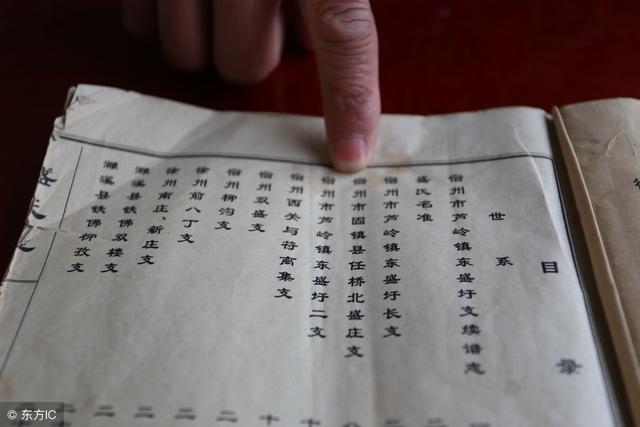 目录
世系
宿州市芦岭镇东盛圩支续谱志
盛氏名准
宿州市芦岭镇东盛圩长支
宿州市固镇县任桥北盛庄支
宿州市芦岭镇东盛圩二支
宿州西关与符离集支
宿州双盛支
宿州柳沟支
徐州前八丁支
徐州南庄、新庄支
濉溪县铁佛双楼支
濉溪县铁佛柳孜支
© 东方IC